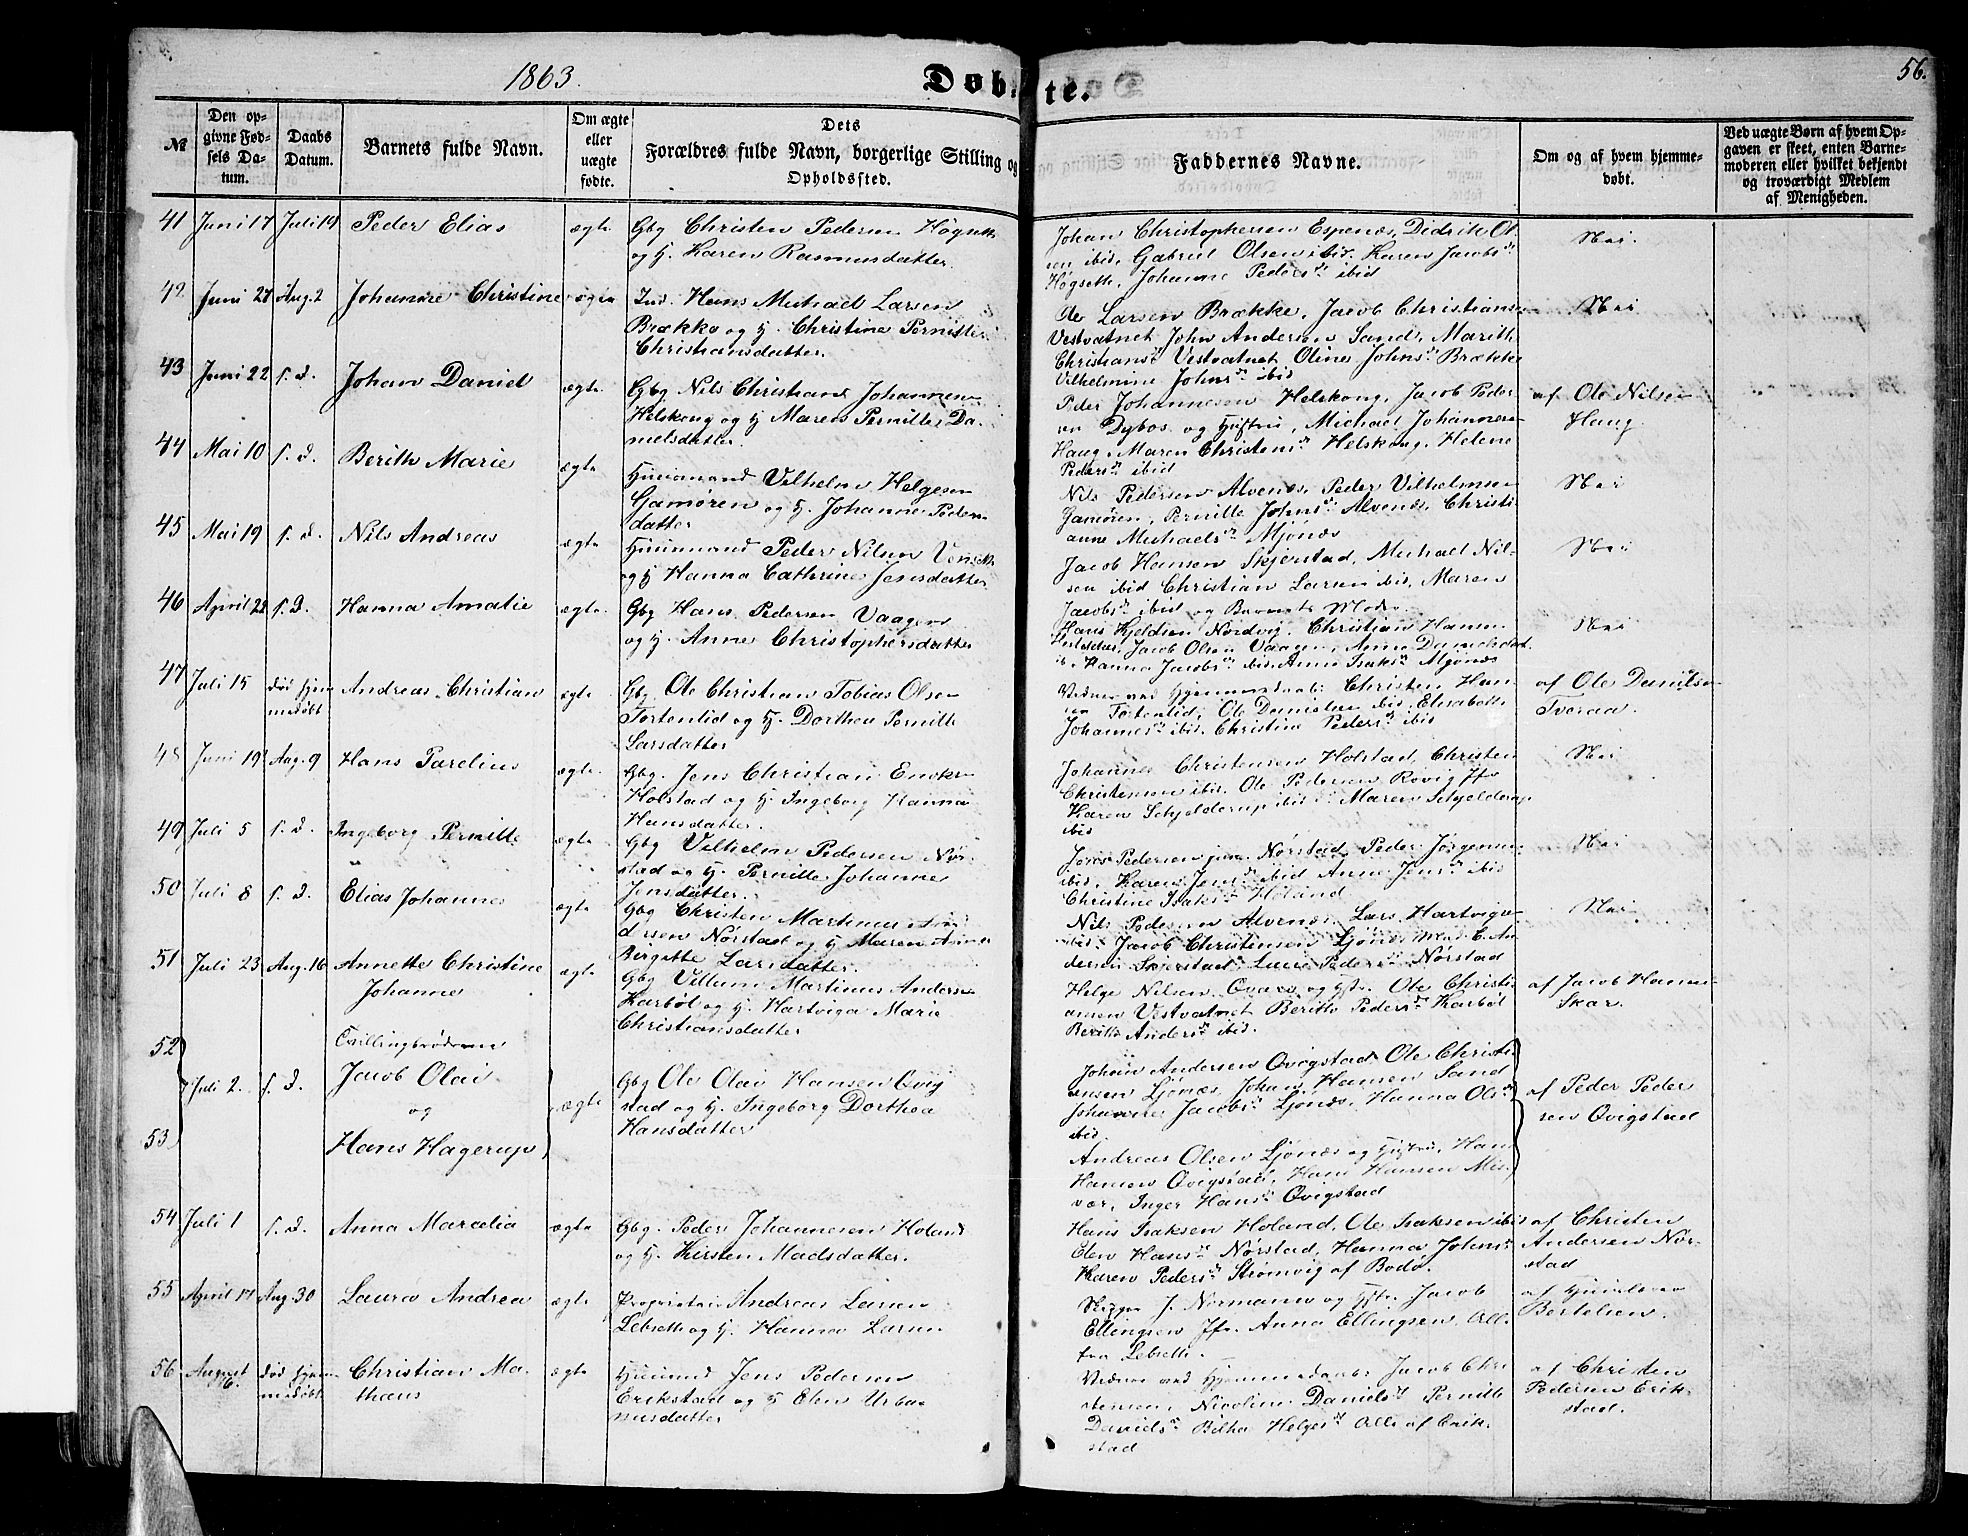 1863.
Døbte.
56.
№
Den op-
givne Fød-
sels Da-
tum.
Daabs
Datum.
Barnets fulde Navn.
Om ægte
eller
uægte
fødte.
Dets
Forældres fulde Navn, borgerlige Stilling og
Opholdssted.
Faddernes Navne.
Om og af hvem hjemme-
døbt.
Ved uægte Børn af hvem Op-
gaven er skeet, enten Barne-
moderen eller hvilket bekjendt
og troværdigt Medlem
af Menigheden.
41 Juni 17 Juli 19 Peder Elias ægte Gbg Christen Pedersen Høgseth
og H. Karen Rasmusdatter.
Johan Christophersen Espenæs, Didrik Ol-
sen ibid, Gabriel Olsen ibid. Karen Jacobsdr
Høgseth, Johanne Pedersdr ibid
Nei.
42 Juni 27 Aug. 2 Johanne Christine ægte Ind. Hans Michael Larsen
Brække og H. Christine Pernille
Christiansdatter.
Ole Larsen Brække, Jacob Christiansen
Vestvatnet John Andersen Sand, Marith
Christiansdr Vestvatnet Oline Johnsdr Brække
Vilhelmine Johnsdr ibid
Nei
43 Juni 22 s. D. Johan Daniel ægte Gbg Nils Christian Johannesen
Helskong og H Maren Pernille Da-
nielsdatter.
Peder Johannesen Helskong, Jacob Peder-
sen Dybos og Hustru, Michael Johannesen
Haug, Maren Christensdr Helskong, Helene
Pedersdr ibid
af Ole Nilsen
Haug.
44 Mai 10 s. D. Berith Marie ægte Huusmand Vilhelm Helgesen
Gamøren og H. Johanne Peders-
datter
Nils Pedersen Alvenes, Peder Vilhelmsen
Gamøren, Pernille Johnsdr Alvenæs, Christi-
anne Michaelsdr Mjønæs
Nei
45 Mai 19 s. D. Nils Andreas ægte Huusmand Peder Nilsen Venseth
og H Hanna Cathrine Jensdatter
Jacob Hansen Skjerstad, Michael Nil-
sen ibid Christian Larsen ibid, Maren
Jacobsdr ibid og Barnets Moder.
Nei
46 April 28 s. D. Hanna Amalie ægte. Gbg Hans Pedersen Vaagen
og H. Anne Christophersdatter
Hans Kjeldsen Nordvig, Christian Hansen
Jacob Olsen Vaagen, Anne Danielsdat.
ib. Hanna Jacobsdr ibid. Anne Isaksdr Mjønæs
Nei
47 Juli 15 død hjem-
medøbt Andreas Christian ægte Gbg. Ole Christian Tobias Olsen
Tortenlid og H. Dorthea Pernille
Larsdatter
Vidner ved Hjemmedaab: Christen Han-
sen Tortenlid, Ole Danielsen ibid, Elisabeth
Johannesdr ibid. Christine Pedersdr ibid
af Ole Danielsen
Tveraa.
48 Juni 19 Aug. 9 Hans Parelius ægte. Gbg. Jens Christian Enok-
Holstad og H. Ingeborg Hanna
Hansdatter.
Johannes Christensen Holstad, Christen
Christensen ibid. Ole Pedersen Røvig Jfr
Karen Schjelderup ibid Maren Schjelderup
ibid
Nei
49 Juli 5 s. D. Ingeborg Pernille ægte Gbg Vilhelm Pedersen Nør-
stad og H. Pernille Johanne
Jensdatter.
Jens Pedersen jun. Nørstad, Peder Jørgensen
ibid, Karen Jensdr ibid Anne Jensdr ibid
Christine Isaksdr Høland
Nei
50 Juli 8 s. D. Elias Johannes ægte Gbg Christen Martinus An-
dersen Nørstad og H Maren Anne
Birgitte Larsdatter.
Nils Pedersen Alvenæs, Lars Hartvigsen
ibid. Jacob Christensen Ljønæs E. An-
dersen Skjerstad, Pedersdr Nørstad
Nei
51 Juli 23 Aug. 16 Annette Christine
Johanne ægte Gbg Villum Martinus Andersen
Karbøl og H. Hartviga Marie
Christiansdatter
Helge Nilsen Qvaro og Hstr. Ole Christi-
ansen Vestvatnet Berith Pedersdr Karbøl
Berith Andersdr ibid.
af Jacob Hansen
Skar.
52
53 Juli 2. s. D. Tvillingbrødrene
Jacob Olai
og
Hans Hagerup ægte Gbg Ole Olai Hansen Qvig-
stad og H. Ingeborg Dorthea
Hansdatter
Johan Andersen Qvigstad. Ole Christi-
ansen Ljønæs, Johan Hansen Sand
Johanne Jacobsdr Ljønæs, Hanna Olsdr
ibid.
Andreas Olsen Ljønæs og Hustru, Hans
Hansen Qvigstad, Hans Hansen Mis-
vær, Inger Hansdr Qvigstad
af Peder Peder
sen Qvigstad
54 Juli 1 s. D. Anna Marcelia ægte Gbg. Peder Johannesen Høland
og H Kirsten Madsdatter.
Hans Isaksen Høland, Ole Isaksen ibid
Elen Hansdr Nørstad, Hanna Johnsdr
Karen Pedersdr Strømvig af Bodø.
af Christen
Andersen Nør-
stad
55 April 17 Aug. 30 Laura Andrea ægte Proprietair Andreas Larsen
Lebseth og H. Hanna Larsen
Skipper J. Normann og Hstr. Jacob
Ellingsen Jfr. Anna Ellingsen, Alle
fra Lebseth.
af Huuslærer
Bertelsen.
56 August
6. død hjem-
medøbt Christian Ma-
thæus ægte Huusmd Jens Pedersen
Erikstad og H Elen Urba-
nusdatter
Vidner ved Hjemmedaab Jacob Chri-
stensen, Nicoline Danielsdr Pernille
Danielsdr Bilha Helgesdr Alle af Erik-
stad
af Christen
Pedersen Erik-
stad.